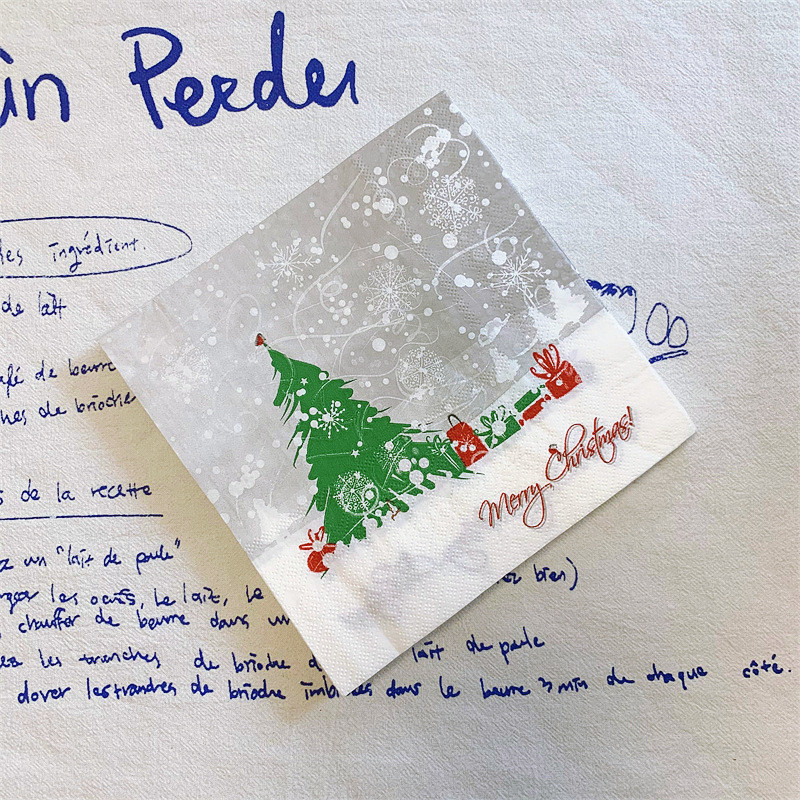 ûn Perdu
les ingrédient.
de lait
afé de beurre
hes de brioche
s de la recette
z un "lait de poule"
les oeufs, le lait, le
ez bien)
chauffer de beurre dans un
les tranches de brioche d lait de poule
dorer les tranches de brioche imbibées dans le beurre 3 min de chaque côté.
Merry Christmas!